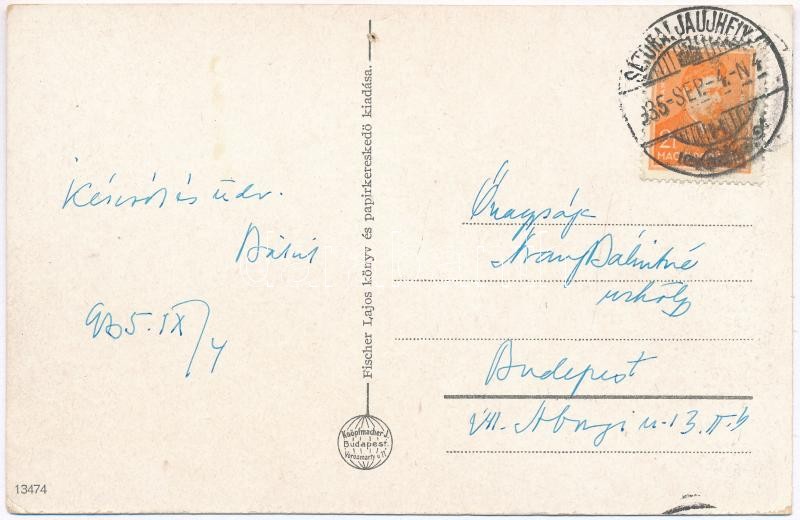 Kézcsók és üdv.
Bálint
935. IX/4
Fischer Lajos könyv és papirkereskedő kiadása.
Knopfmacher J.
Budapest.
Vorosmarty u.
13474
SÁTORALJAUJHELY
935-SEP.-4.-N4
2f
MAGYAR
Őnagysága
Arany Bálintné
urhölgy
Budapest
VII. Abonyi u. 13. II.